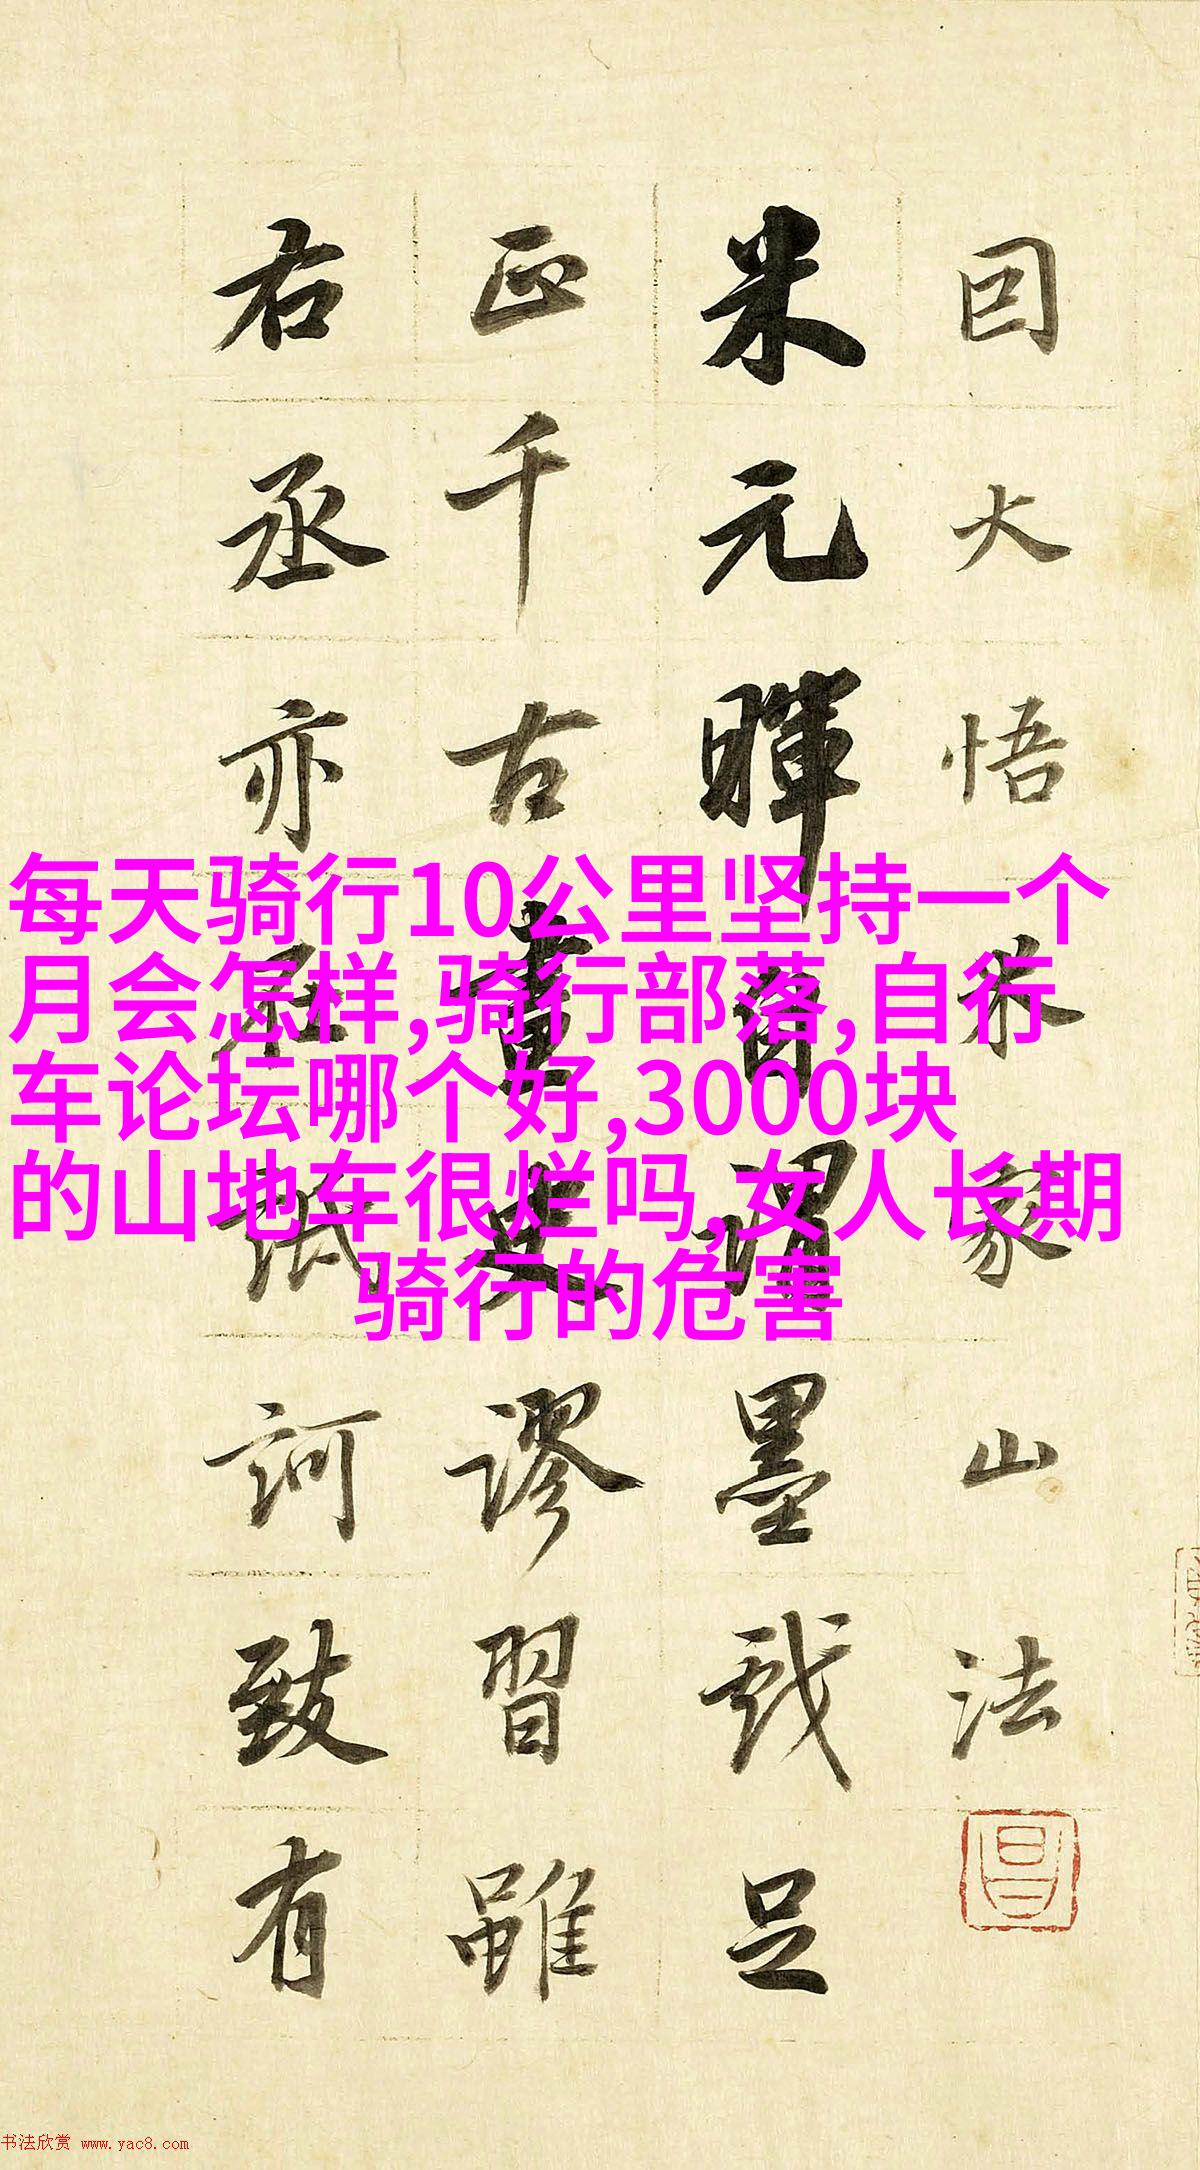 回大悟米家山法
米元暉自謂墨戲足
正千古畫史謬習雖
右丞亦在詆訶致有
每天骑行10公里坚持一个
月会怎样,骑行部落,自行
车论坛哪个好,3000块
的山地车很烂吗,女人长期
骑行的危害
书法欣赏 www.yac8.com